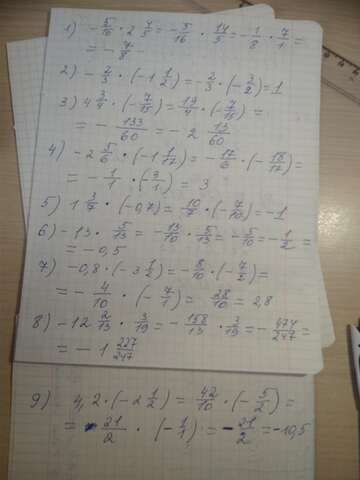 1) -5/16 · 2 4/5 = -5/16 · 14/5 = -1/8 · 7/1 =
= -7/8
2) -2/3 · (-1 1/2) = -2/3 · (-3/2) = 1
3) 4 3/4 · (-7/15) = 19/4 · (-7/15) =
= -133/60 = -2 13/60
4) -2 5/6 · (-1 1/17) = -17/6 · (-18/17) =
= -1/1 · (3/1) = 3
5) 1 3/7 · (-0,7) = 10/7 · (-7/10) = -1
6) -13 · 5/13 = -13/10 · 5/13 = -5/10 = -1/2 =
= -0,5
7) -0,8 · (-3 1/2) = -8/10 · (-7/2) =
= -4/10 · (-7/1) = 28/10 = 2,8
8) -12 2/13 · 3/19 = -158/13 · 3/19 = -474/247 =
= -1 227/247
9) 4,2 · (-2 1/2) = 42/10 · (-5/2) =
= -21/2 · (-1/1) = -21/2 = -10,5